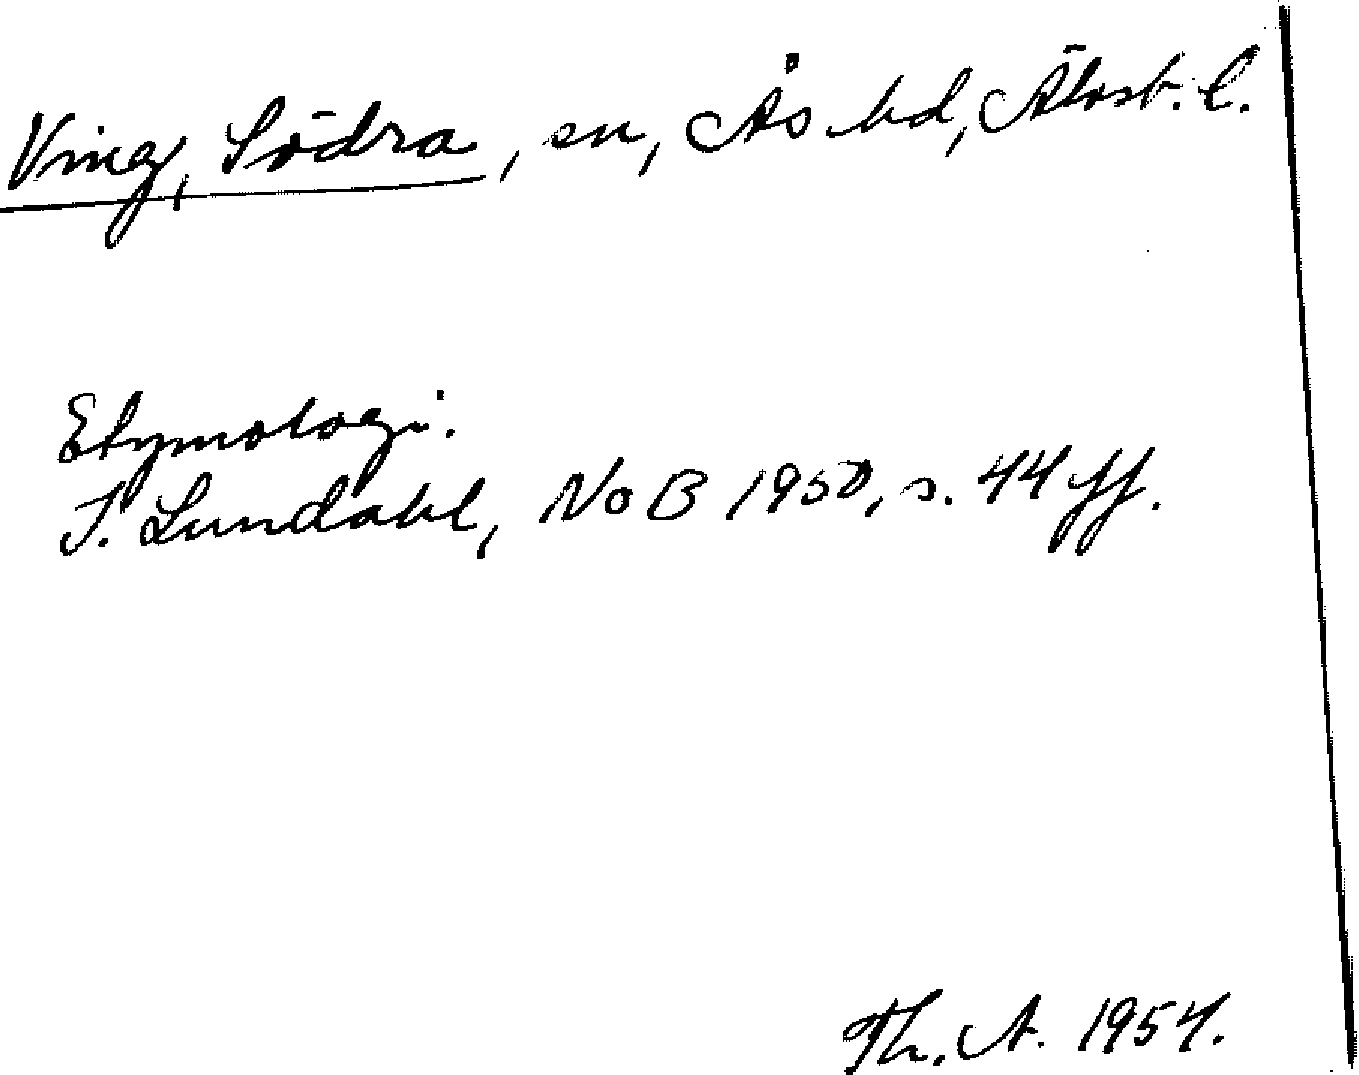 Ving, Södra, sn, Ås hd, Älvsb. l.
Etymologi.
I. Lundahl, NoB 1950, s. 44 ff.
Th. A. 1954.